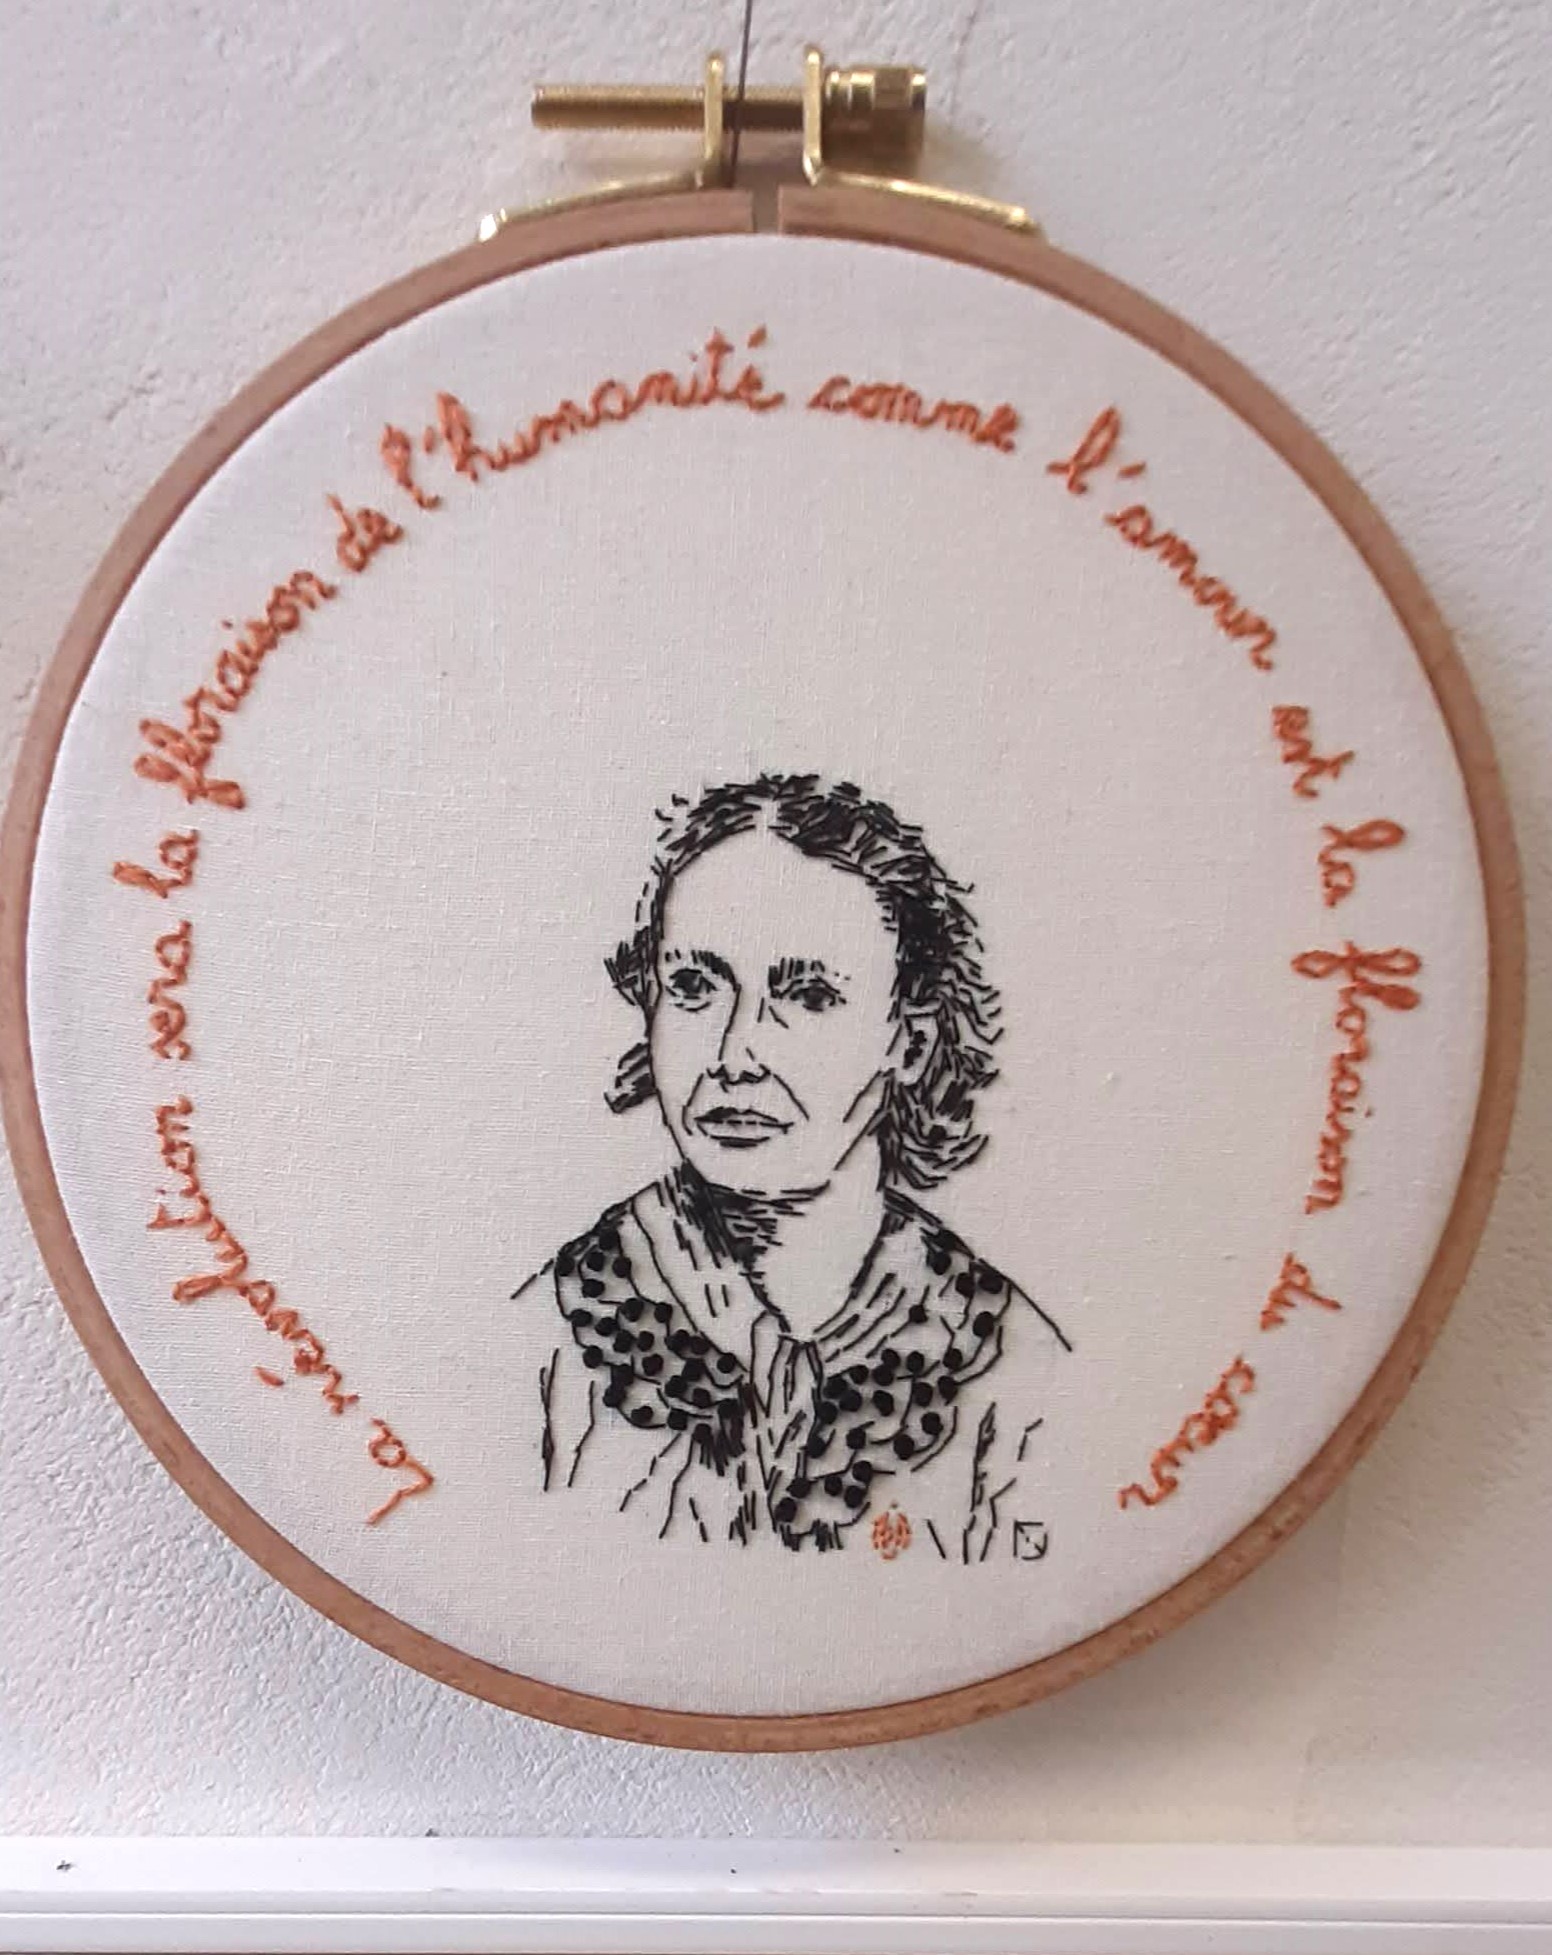 La révolution sera la floraison de l'humanité comme l'amour est la floraison du coeur